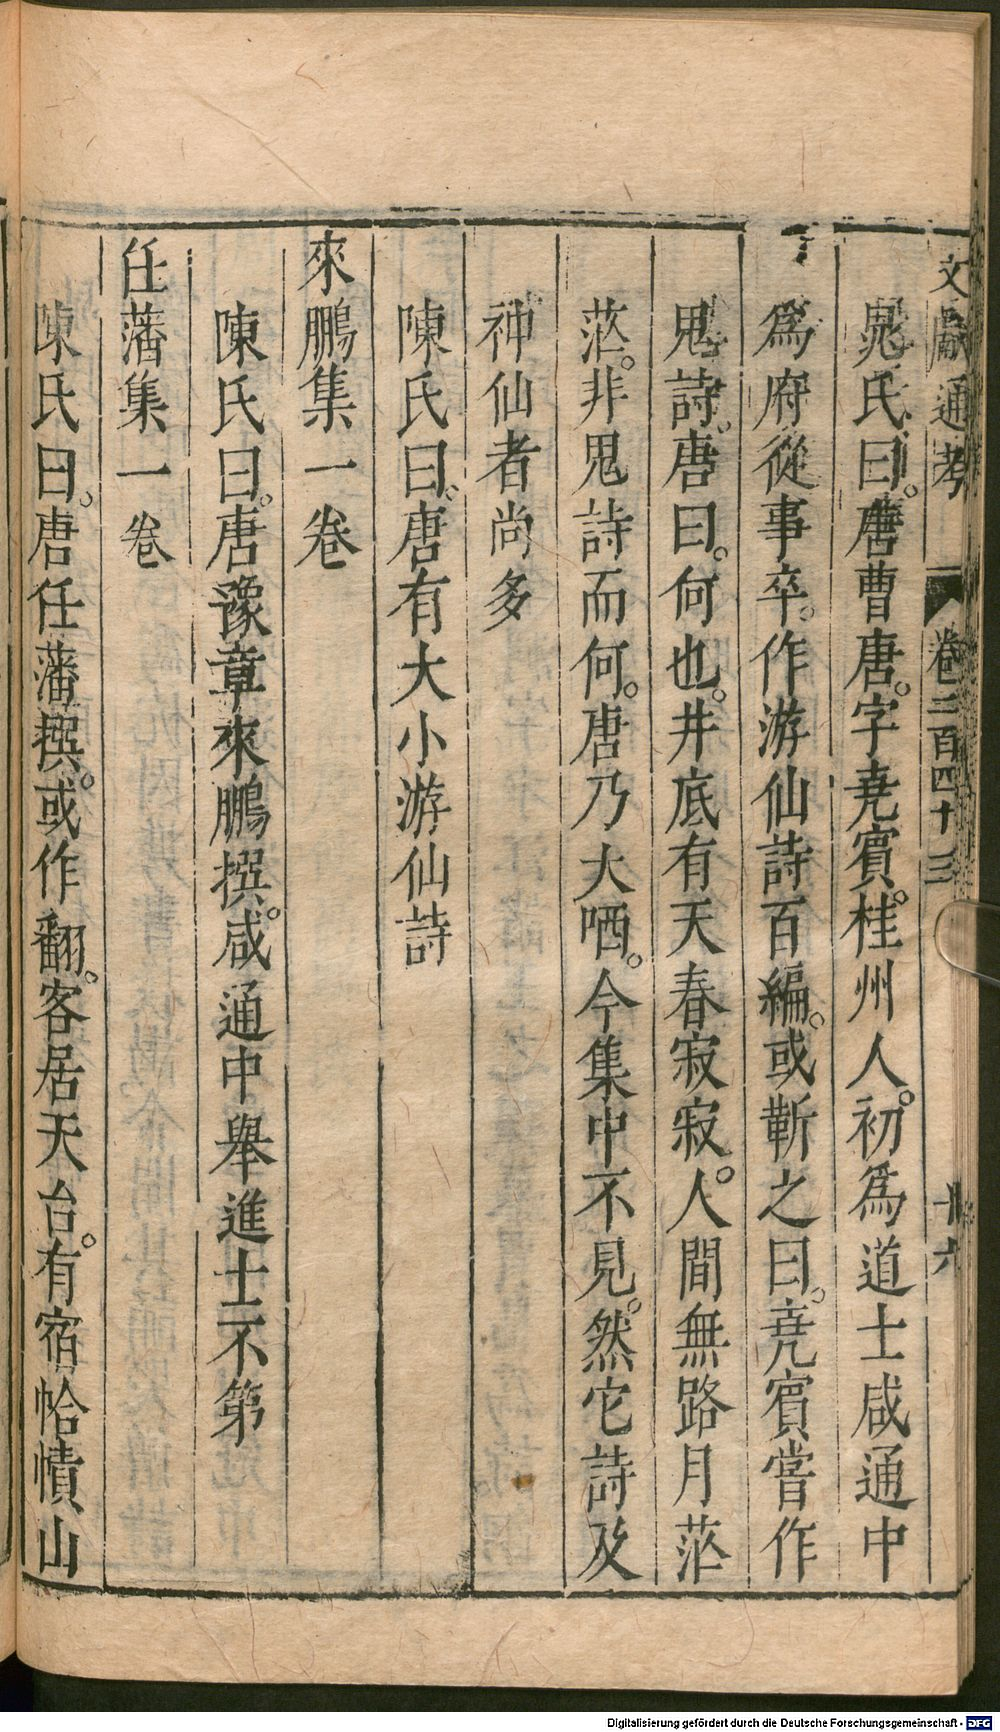 文獻通考 卷二百四十三 十六
晁氏曰。唐曹唐。字堯賓。桂州人。初爲道士咸通中
爲府從事卒。作游仙詩百編。或靳之曰。堯賓嘗作
鬼詩。唐曰。何也。井底有天春寂寂。人間無路月茫
茫。非鬼詩而何。唐乃大哂。今集中不見。然它詩及
神仙者尚多
陳氏曰。唐有大小游仙詩
來鵬集一卷
陳氏曰。唐豫章來鵬撰。咸通中舉進士不第
任藩集一卷
陳氏曰。唐任藩撰。或作翻。客居天台。有宿帢幘山
Digitalisierung gefördert durch die Deutsche Forschungsgemeinschaft - DFG